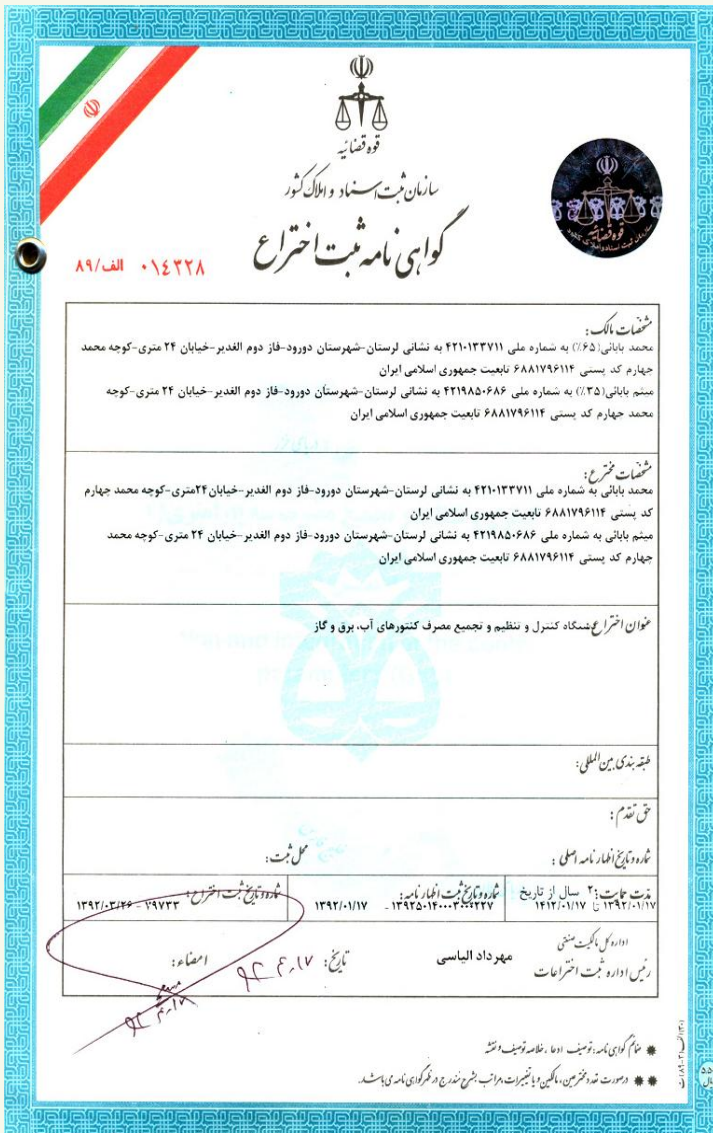 قوه قضائیه
سازمان ثبت اسناد و املاک کشور
گواهی نامه ثبت اختراع
۰۱٤۳۲۸ الف/۸۹
قوه قضائیه
سازمان ثبت اسناد و املاک کشور
مشخصات مالک:
محمد بابائی(۶۵٪) به شماره ملی ۴۲۱۰۱۳۳۷۱۱ به نشانی لرستان-شهرستان دورود-فاز دوم الغدیر-خیابان ۲۴ متری-کوچه محمد
چهارم کد پستی ۶۸۸۱۷۹۶۱۱۴ تابعیت جمهوری اسلامی ایران
میثم بابائی(۳۵٪) به شماره ملی ۴۲۱۹۸۵۰۶۸۶ به نشانی لرستان-شهرستان دورود-فاز دوم الغدیر-خیابان ۲۴ متری-کوچه
محمد چهارم کد پستی ۶۸۸۱۷۹۶۱۱۴ تابعیت جمهوری اسلامی ایران
مشخصات مخترع:
محمد بابائی به شماره ملی ۴۲۱۰۱۳۳۷۱۱ به نشانی لرستان-شهرستان دورود-فاز دوم الغدیر-خیابان۲۴متری-کوچه محمد چهارم
کد پستی ۶۸۸۱۷۹۶۱۱۴ تابعیت جمهوری اسلامی ایران
میثم بابائی به شماره ملی ۴۲۱۹۸۵۰۶۸۶ به نشانی لرستان-شهرستان دورود-فاز دوم الغدیر-خیابان ۲۴ متری-کوچه محمد
چهارم کد پستی ۶۸۸۱۷۹۶۱۱۴ تابعیت جمهوری اسلامی ایران
عنوان اختراع: کنترل و تنظیم و تجمیع مصرف کنتورهای آب، برق و گاز
طبقه بندی بین المللی:
حق تقدم:
شماره و تاریخ اظهار نامه اصلی: محل ثبت:
مدت حمایت: ۲۰ سال از تاریخ
۱۳۹۲/۰۱/۱۷ تا ۱۴۱۲/۰۱/۱۷
شماره و تاریخ ثبت اظهار نامه:
۱۳۹۲۵۰۱۴۰۰۰۳۰۰۰۲۲۷ - ۱۳۹۲/۰۱/۱۷
شماره و تاریخ ثبت اختراع:
۷۹۷۳۳ - ۱۳۹۲/۰۳/۲۶
اداره کل مالکیت صنعتی
رئیس اداره ثبت اختراعات
مهرداد الیاسی
تاریخ:
امضاء:
ضمائم گواهی نامه: توصیف، ادعا، خلاصه توصیف و نقشه
درصورت تعدد مخترعین، مالکین و یا تغییرات، مراتب بشرح مندرج در ظهر گواهی نامه می باشد.